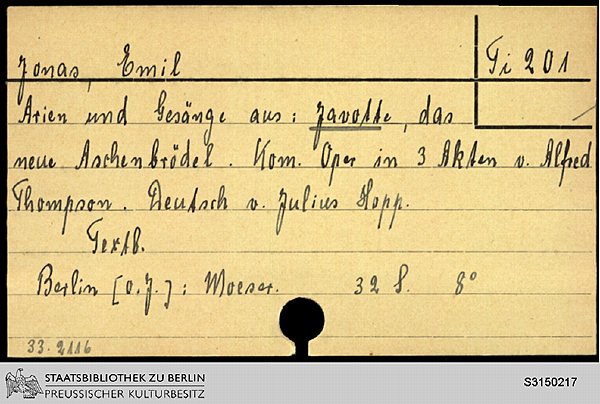 Jonas, Emil
Ti 201
Arien und Gesänge aus: Javotte, das
neue Aschenbrödel. Kom. Oper in 3 Akten v. Alfred
Thompson. Deutsch v. Julius Hopp.
Textb.
Berlin [o.J.]: Moeser. 32 S. 8°
33.2116
STAATSBIBLIOTHEK ZU BERLIN
PREUSSISCHER KULTURBESITZ
S3150217